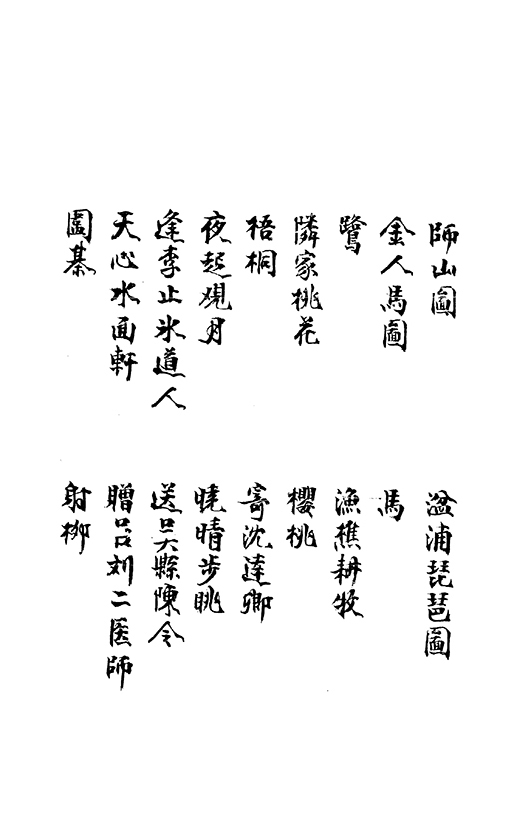 師山圖
湓浦琵琶圖
金人馬圖
馬
鷺
漁樵耕牧
隣家桃花
櫻桃
梧桐
寄沈達卿
夜起覌月
曉晴步眺
逢李止氷道人
送吳縣陳令
天心水面軒
贈呂刘二医師
圍棊
射柳